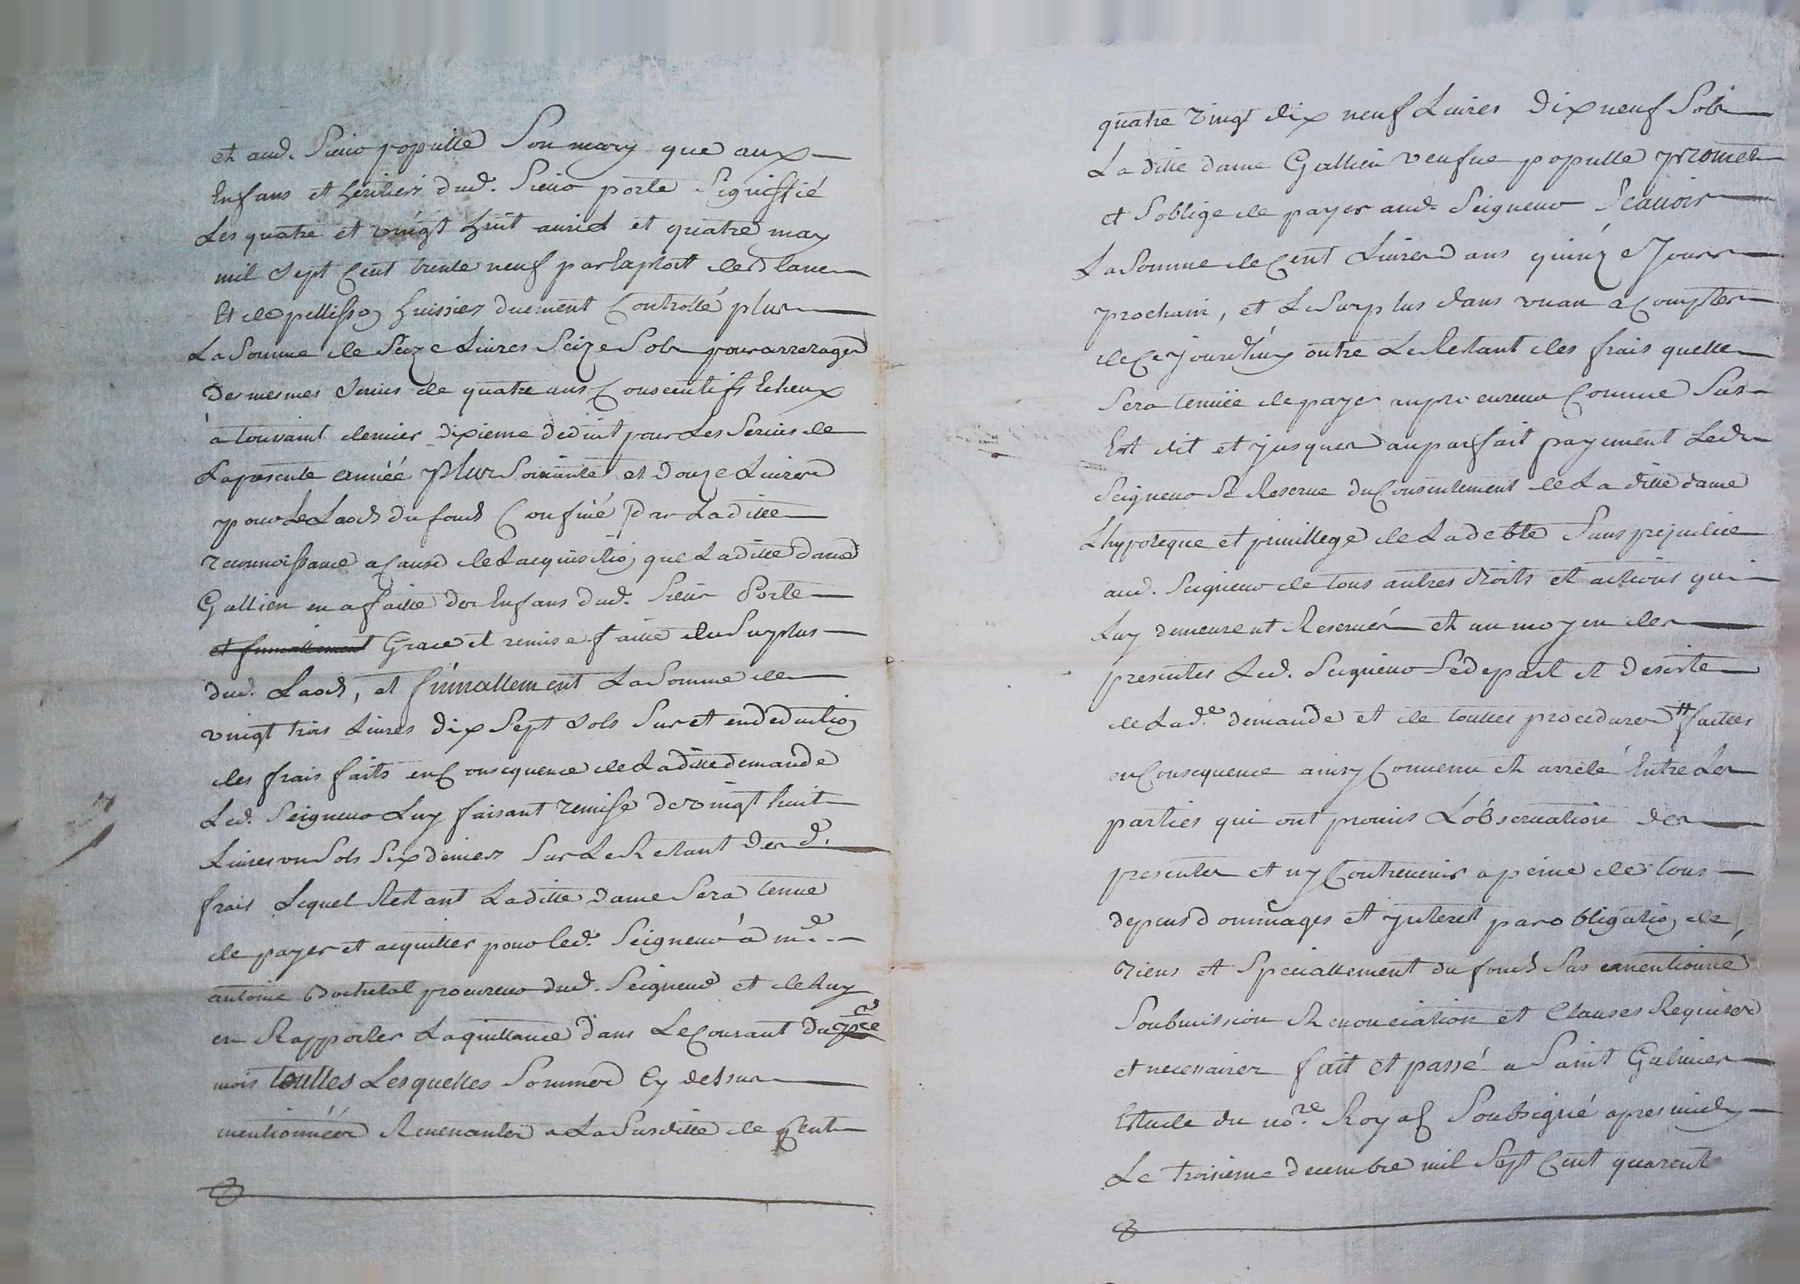 et aud. Sieur populle Son mary que aux
Enfans et heritiers dud. Sieur porte Signiffié
Les quatre et vingt huit auril et quatre may
mil Sept Cent trente neuf par Exploit de
Et de pellisso, huissier duement Controllé plus
La Somme de Seize Liures Seize Sols pour arrerages
des mesmes Seruis de quatre ans Consecutifs Echeux
à toussaint dernier dixieme deduit pour Les Seruis de
La presente année plus Soixante et Douze Liures
pour Le Laods du fond Confiné par La ditte
reconnoissance a Cause de Lacquisitio, que La ditte dame
Gallien en a faitte des Enfans dud. Sieur Porte
et finnallement Grace et remise faitte du Surplus
dud. Laods, et finnallement La Somme de
vingt trois Liures dix Sept Sols Sur et en deductio,
des frais faits en Consequence de La ditte demande
Led. Seigneur Luy faisant remise de vingt huit
Liures un Sols Six deniers Sur Le Restant desd.
frais Lequel Restant La ditte dame Sera tenue
de payer et acquitter pour led. Seigneur à mᵉ.
antoine procureur dud. Seigneur et de Luy
en Rapporter La quittance dans Le Courant du
mois touttes Lesquelles Sommes Cy dessus
mentionnées Reuenantes a La Susditte de Cent
quatre vingt dix neuf Liures dix neuf Sols
La ditte dame Gallien veufue populle promet
et Soblige de payer aud. Seigneur Scauoir
La Somme de Cent Liures dans quinze Jours
prochain, et Le Surplus dans vn an a Compter
de Ce Jourdhuy outre Le Restant des frais quelle
Sera tenüe de payer au procureur Comme Sus
Est dit et Jusques au parfait payement Led.
Seigneur Se Reserue du Consentement de La ditte dame
Lhypoteque et priuillege de La debte Sans prejudice
aud. Seigneur de tous autres droits et actions qui
Luy demeurent Reserués et au moyen des
presentes Led. Seigneur Se depart et desiste
de Lad.ᵉ demande et de touttes procedures faittes
en Consequence ainsy Conuenu et arrêté Entre Les
parties qui ont promis L'obseruation des
presentes et ny Contreuenir a peine de tous
depens dommages et jnterest par obligatio, de
biens et Speciallement du fond Sus mentionné
Soubmission Renonciation et Clauses Requises
et necessaires fait et passé a Saint Galmier
Estude du no.ʳᵉ Royal Soubsigné apres midy
Le troisieme decembre mil Sept Cent quarent